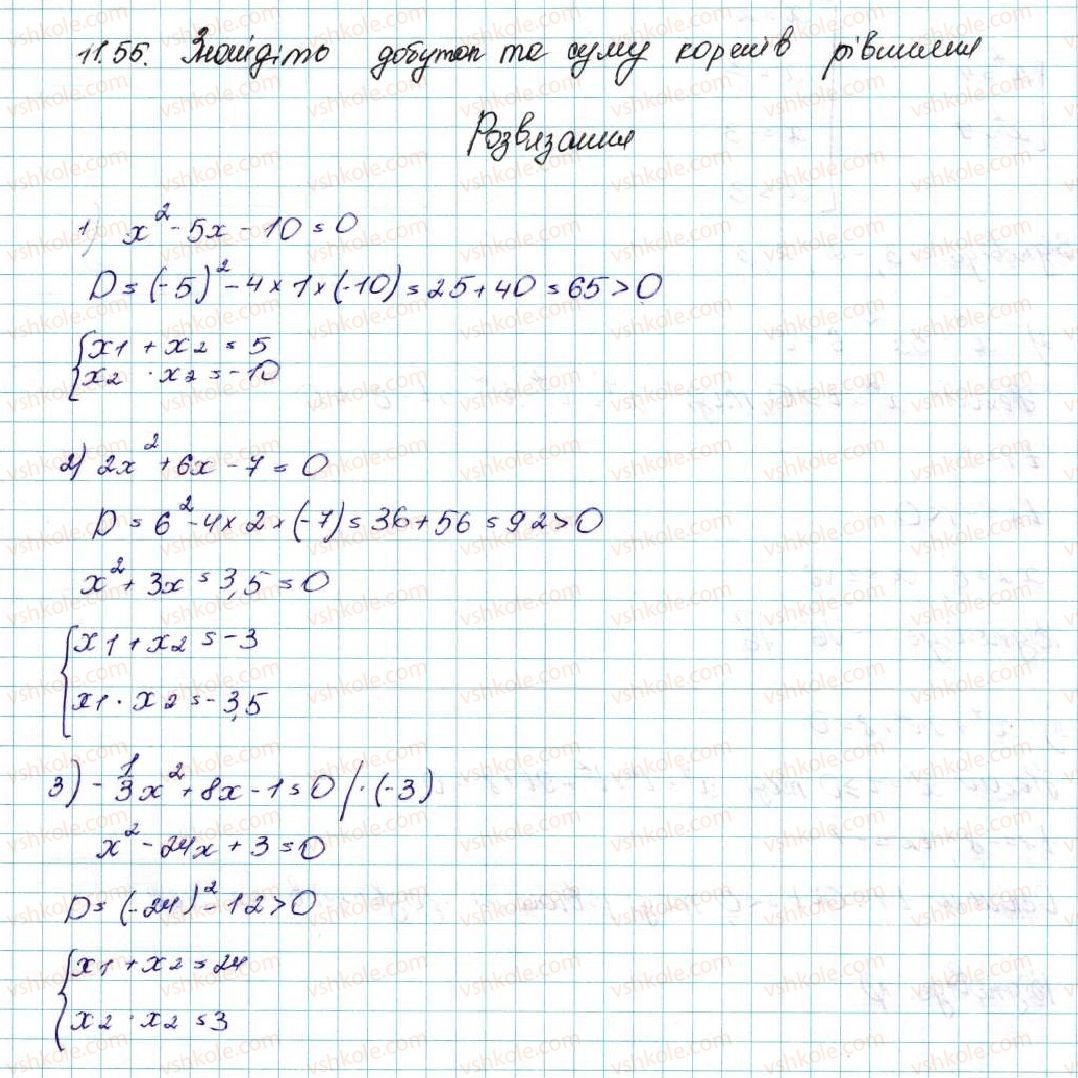 11.55. Знайдіть добуток та суму коренів рівняння
Розвязання
1) x² - 5x - 10 = 0
D = (-5)² - 4 × 1 × (-10) = 25 + 40 = 65 > 0
{ x1 + x2 = 5
x2 · x2 = -10
2) 2x² + 6x - 7 = 0
D = 6² - 4 × 2 × (-7) = 36 + 56 = 92 > 0
x² + 3x = 3,5 = 0
{ x1 + x2 = -3
x1 · x2 = -3,5
3) - 1/3 x² + 8x - 1 = 0 / · (-3)
x² - 24x + 3 = 0
D = (-24)² - 12 > 0
{ x1 + x2 = 24
x2 · x2 = 3
vshkole.com